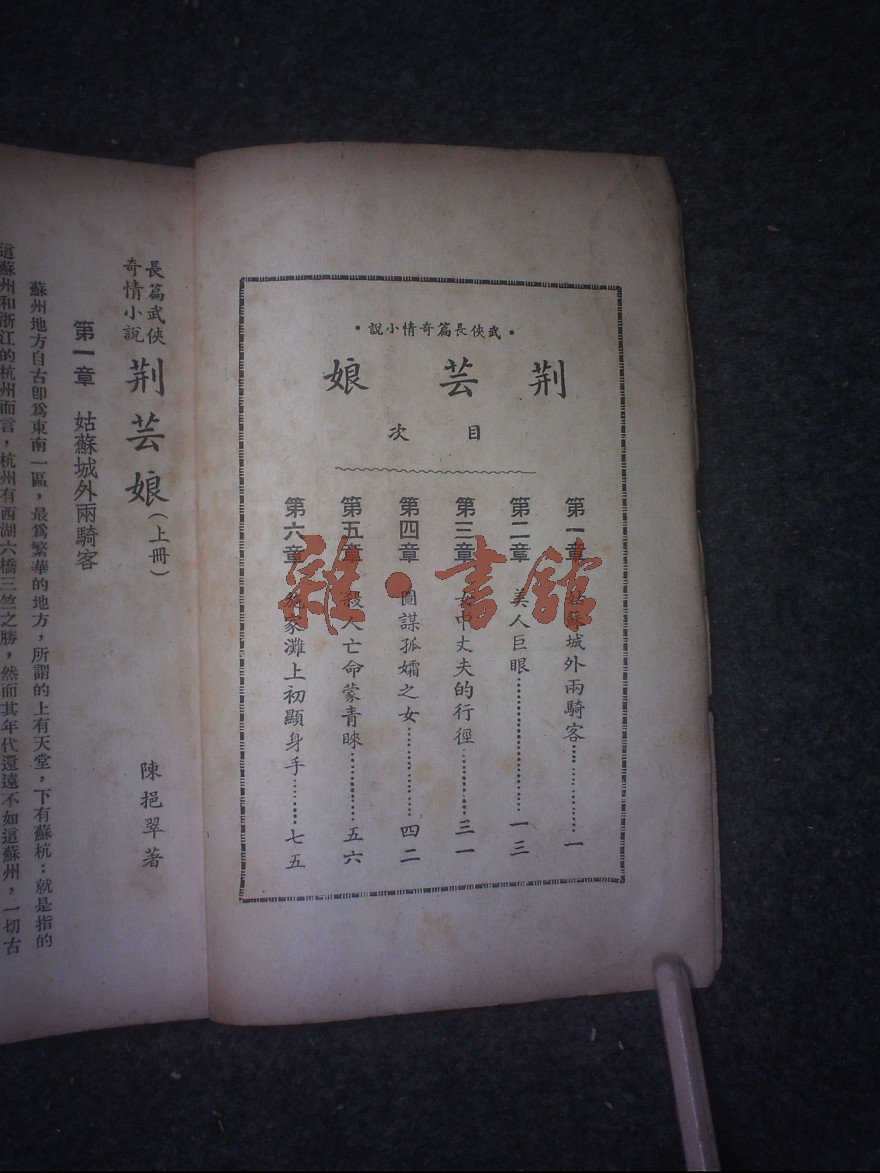 •武俠長篇奇情小說•
荆芸娘
目次
第一章 姑蘇城外兩騎客……………一
第二章 美人巨眼……………一三
第三章 女中丈夫的行徑……………三一
第四章 圖謀孤孀之女……………四二
第五章 殺人亡命蒙青睞……………五六
第六章 施家灘上初顯身手……………七五
雜·書館
長篇武俠
奇情小說
荆芸娘(上冊)
陳挹翠著
第一章 姑蘇城外兩騎客
蘇州地方自古卽爲東南一區,最爲繁華的地方,所謂的上有天堂,下有蘇杭:就是指的
這蘇州和浙江的杭州而言,杭州有西湖六橋三竺之勝,然而其年代還遠不如這蘇州,一切古